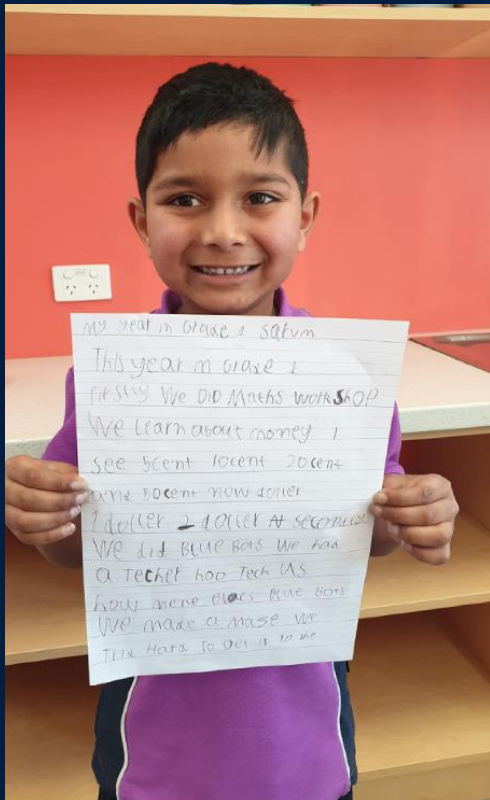 My year in Grade 1 satvm
This year in Grade 1
firstly We DID Maths workShOP
We Learn about money I
see 5cent 10cent 20cent
and 50cent now doller
1 doller 2 doller At
We did BLUE BOtS We had
a Techer hoo Tech US
how BLUE BOts
We made a mase We
Hard To Get it to the